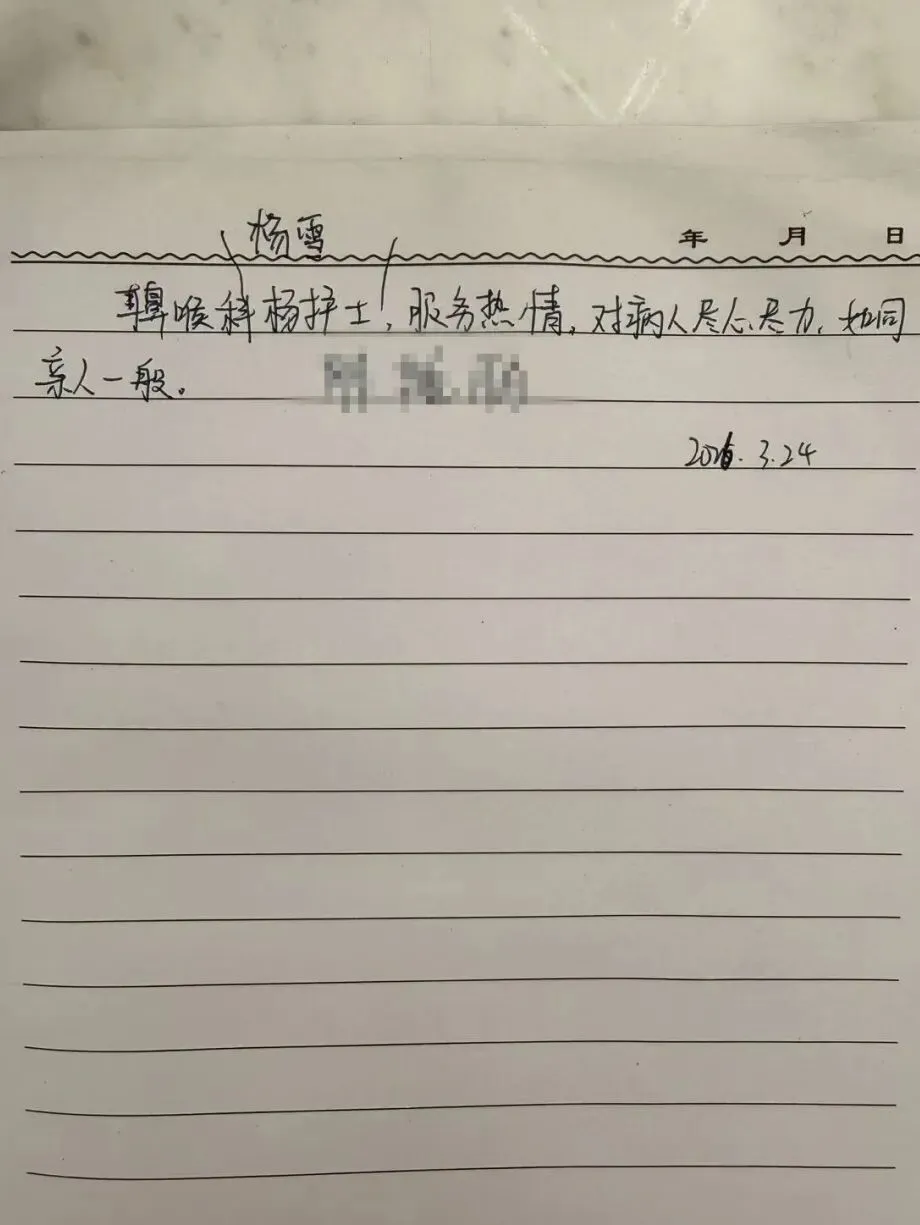 杨雪
年 月 日
鼻喉科杨护士，服务热情，对病人尽心尽力，如同
亲人一般。
3.24